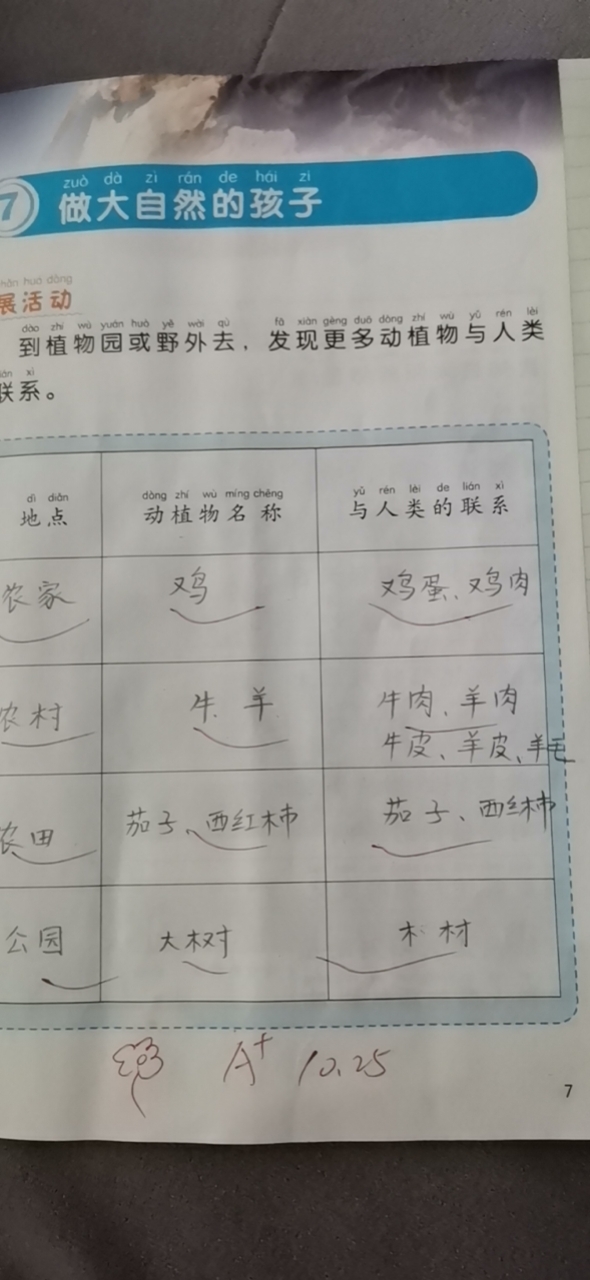 zuò dà zì rán de hái zi
7 做大自然的孩子
zhǎn huó dòng
展活动
dào zhí wù yuán huò yě wài qù fā xiàn gèng duō dòng zhí wù yǔ rén lèi
到植物园或野外去，发现更多动植物与人类
lián xì
联系。
dì diǎn dòng zhí wù míng chēng yǔ rén lèi de lián xì
地点 动植物名称 与人类的联系
农家 鸡 鸡蛋、鸡肉
农村 牛 羊 牛肉、羊肉
牛皮、羊皮、羊毛
农田 茄子、西红柿 茄子、西红柿
公园 大树 木材
A+ 10.25
7